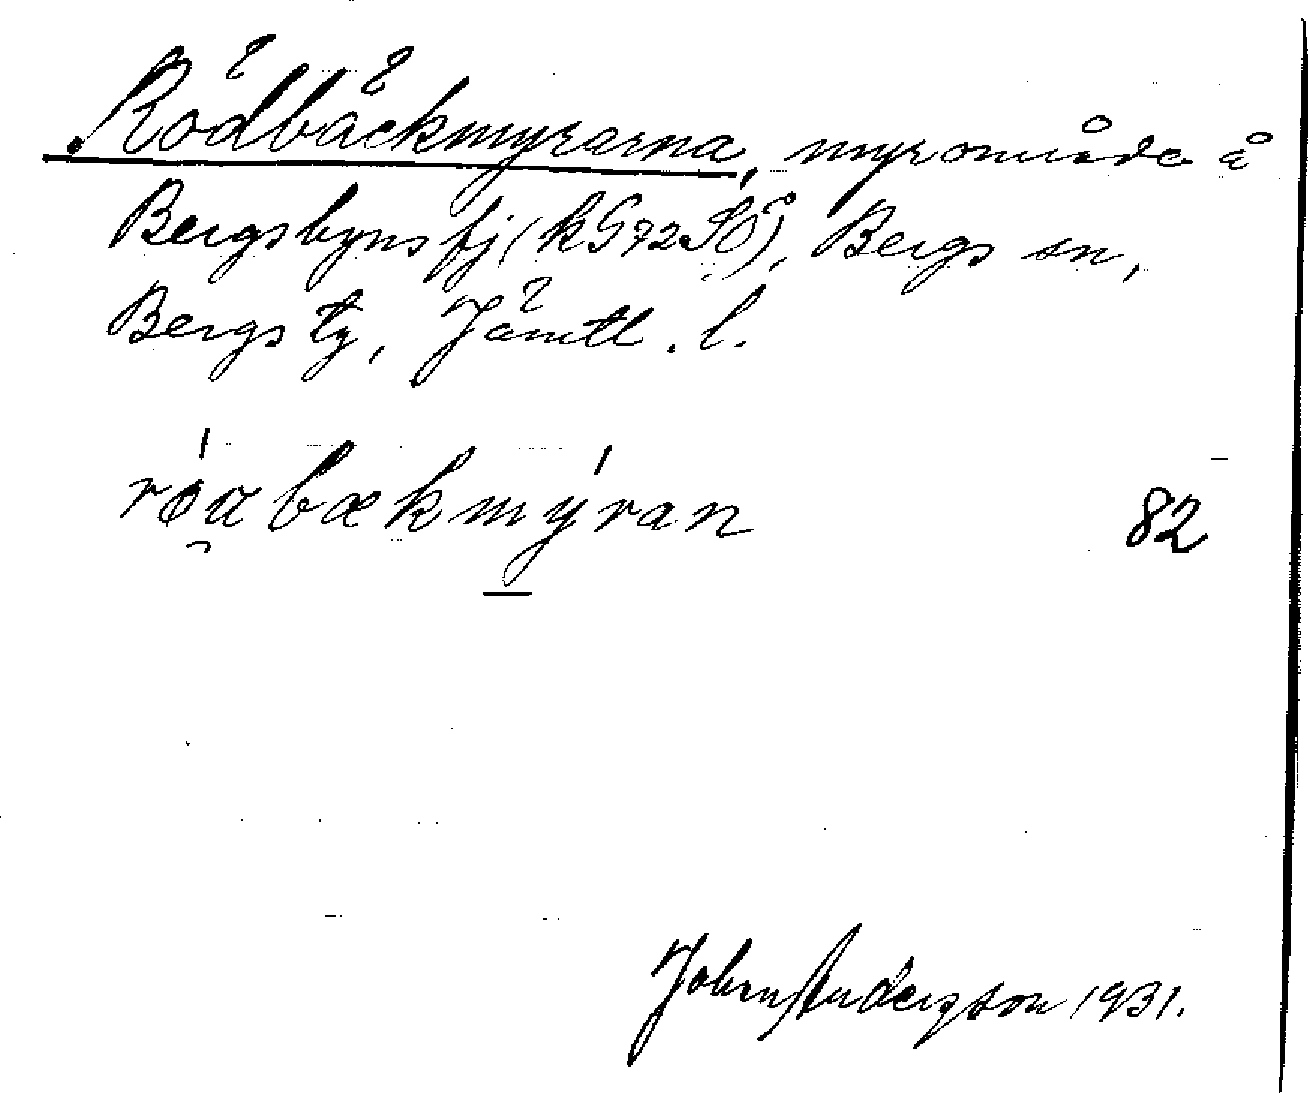 Rödbäckmyrarna, myrområde å
Bergsbyns fj (kG72SÖ), Bergs sn,
Bergs tg, Jämtl. l.
rǿa̯bækmýran
82
John Andersson 1931.